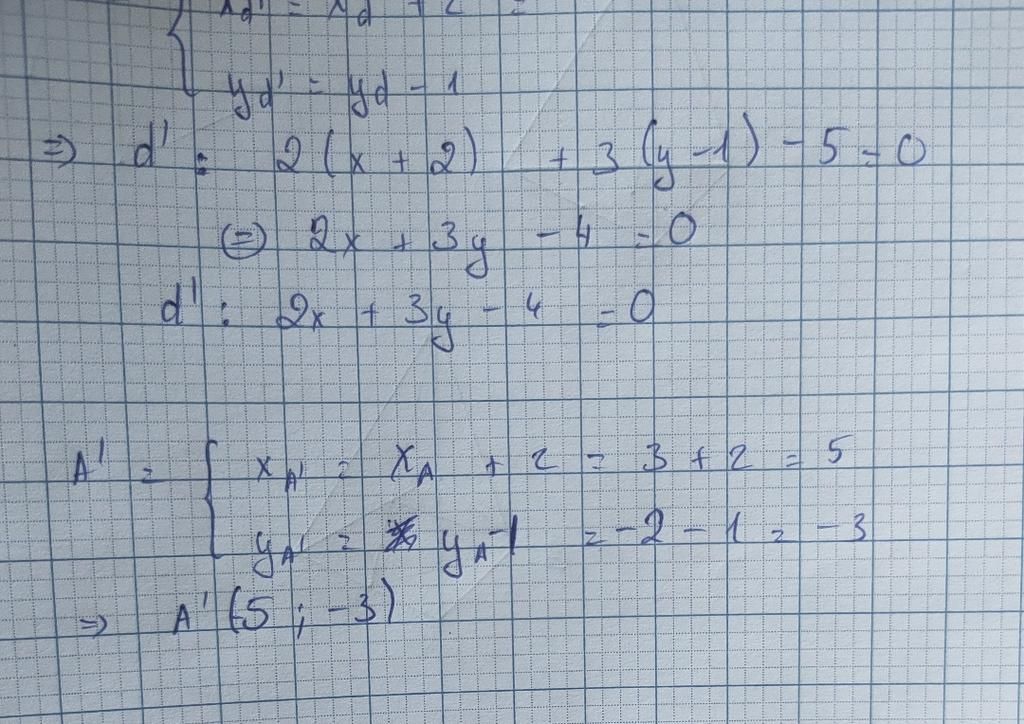 { x_d' = x_d + 2 =
y_d' = y_d - 1
⇒ d' : 2(x + 2) + 3(y - 1) - 5 = 0
⇔ 2x + 3y - 4 = 0
d' : 2x + 3y - 4 = 0
A' = { x_A' = x_A + 2 = 3 + 2 = 5
y_A' = y_A - 1 = -2 - 1 = -3
⇒ A' (5 ; -3)